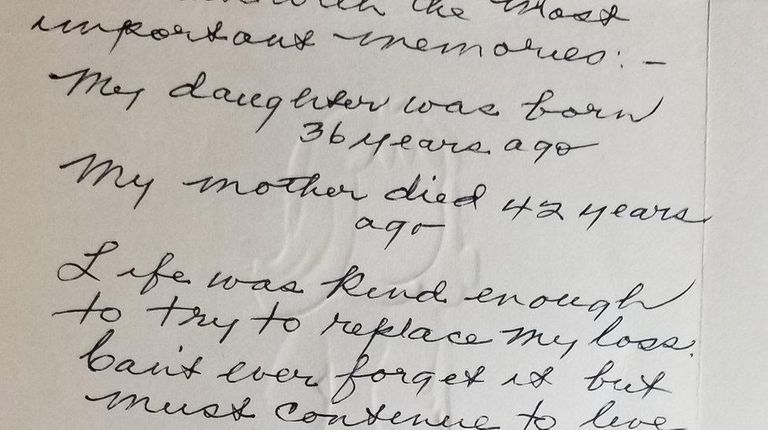 with the most
important memories: -
My daughter was born
36 years ago
My mother died 42 years
ago
Life was kind enough
to try to replace my loss.
Can't ever forget it but
must continue to live